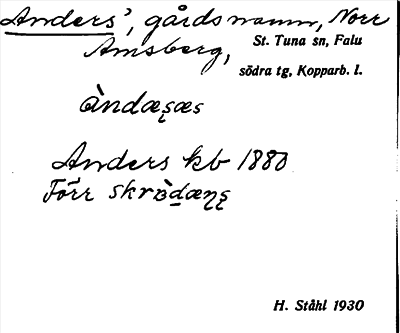 Anders', gårdsnamn, Norr
Amsberg, St. Tuna sn, Falu
södra tg, Kopparb. l.
àndæs̨æs
Anders kb 1880
Förr skrὰdæn̨s̨
H. Ståhl 1930